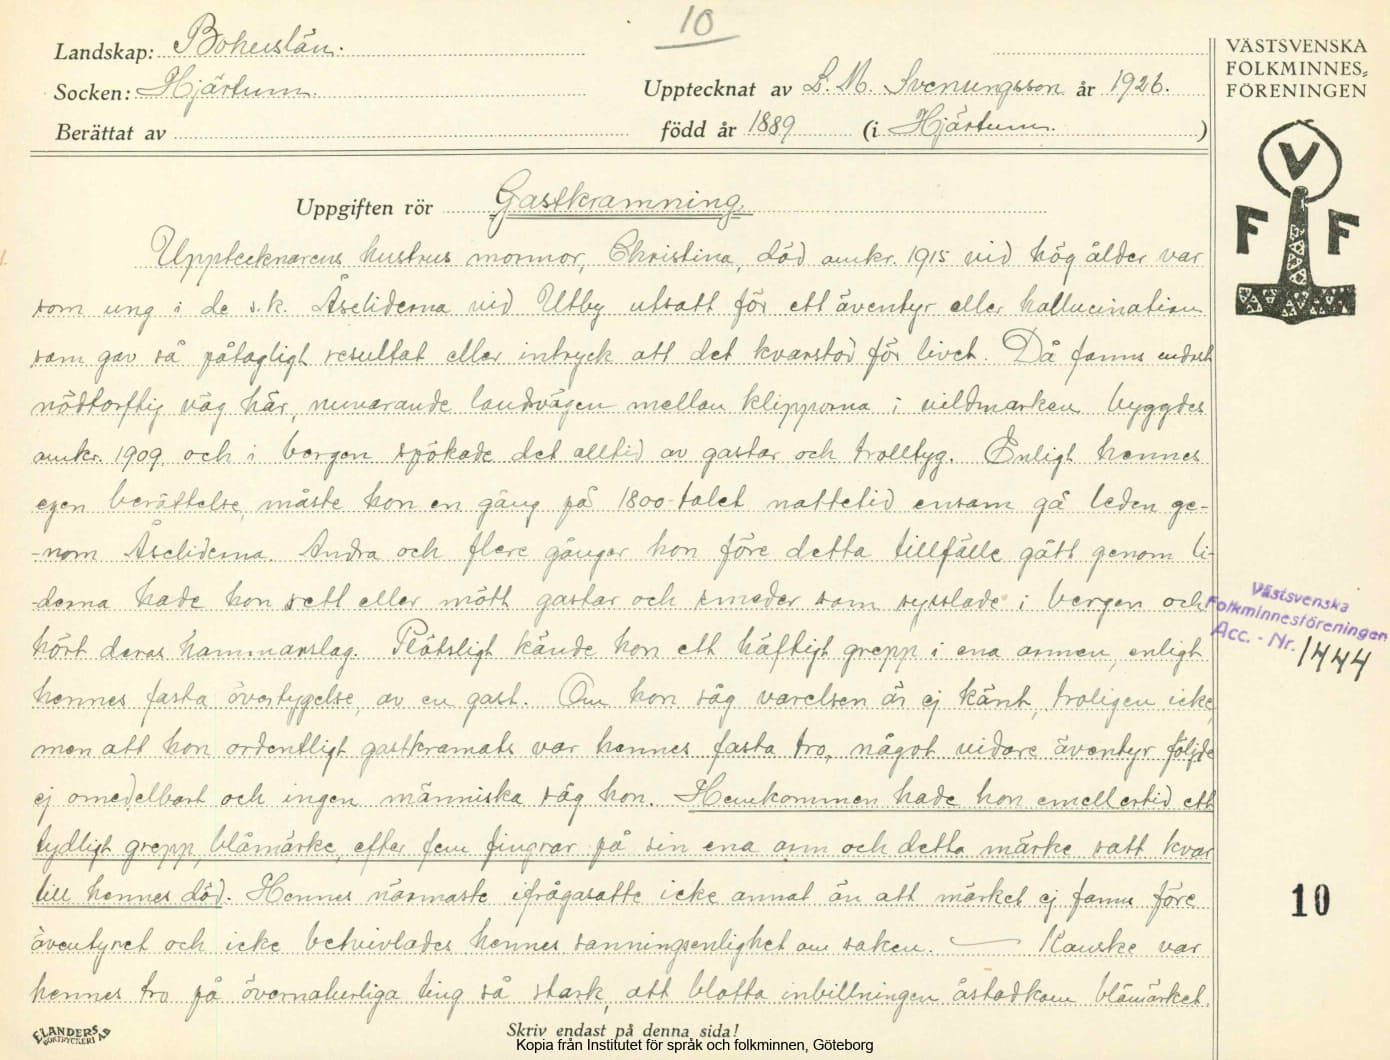 10
Landskap: Bohuslän.
Socken: Hjärtum.
Upptecknat av L. M. Svenungsson år 1926.
Berättat av
född år 1889 (i Hjärtum. )
VÄSTSVENSKA
FOLKMINNES-
FÖRENINGEN
V
F F
Uppgiften rör Gastkramning
Upptecknarens hustrus mormor, Christina, död omkr. 1915 vid hög ålder var
som ung i de s.k. Åseliderna vid Utby utsatt för ett äventyr eller hallucination
som gav så påtagligt resultat eller intryck att det kvarstod för livet. Då fanns endast
nödtorftig väg här, nuvarande landsvägen mellan klipporna i vildmarken byggdes
omkr. 1909, och i bergen spökade det alltid av gastar och trolltyg. Enligt hennes
egen berättelse, måste hon en gång på 1800-talet nattetid ensam gå leden ge-
-nom Åseliderna. Andra och flere gånger hon före detta tillfälle gått genom li-
-derna hade hon sett eller mött gastar och smeder som sysslade i bergen och
hört deras hammarslag. Plötsligt kände hon ett häftigt grepp i ena armen, enligt
hennes fasta övertygelse, av en gast. Om hon såg varelsen är ej känt, troligen icke,
men att hon ordentligt gastkramats var hennes fasta tro, något vidare äventyr följde
ej omedelbart och ingen människa såg hon. Hemkommen hade hon emellertid ett
tydligt grepp, blåmärke, efter fem fingrar på sin ena arm och detta märke satt kvar
till hennes död. Hennes närmaste ifrågasatte icke annat än att märket ej fanns före
äventyret och icke betvivlades hennes sanningsenlighet om saken. — Kanske var
hennes tro på övernaturliga ting så stark, att blotta inbillningen åstadkom blåmärket.
Västsvenska
Folkminnesföreningen
Acc. - Nr. 1444
10
ELANDERS
BOKTRYCKERI AB
Skriv endast på denna sida!
Kopia från Institutet för språk och folkminnen, Göteborg